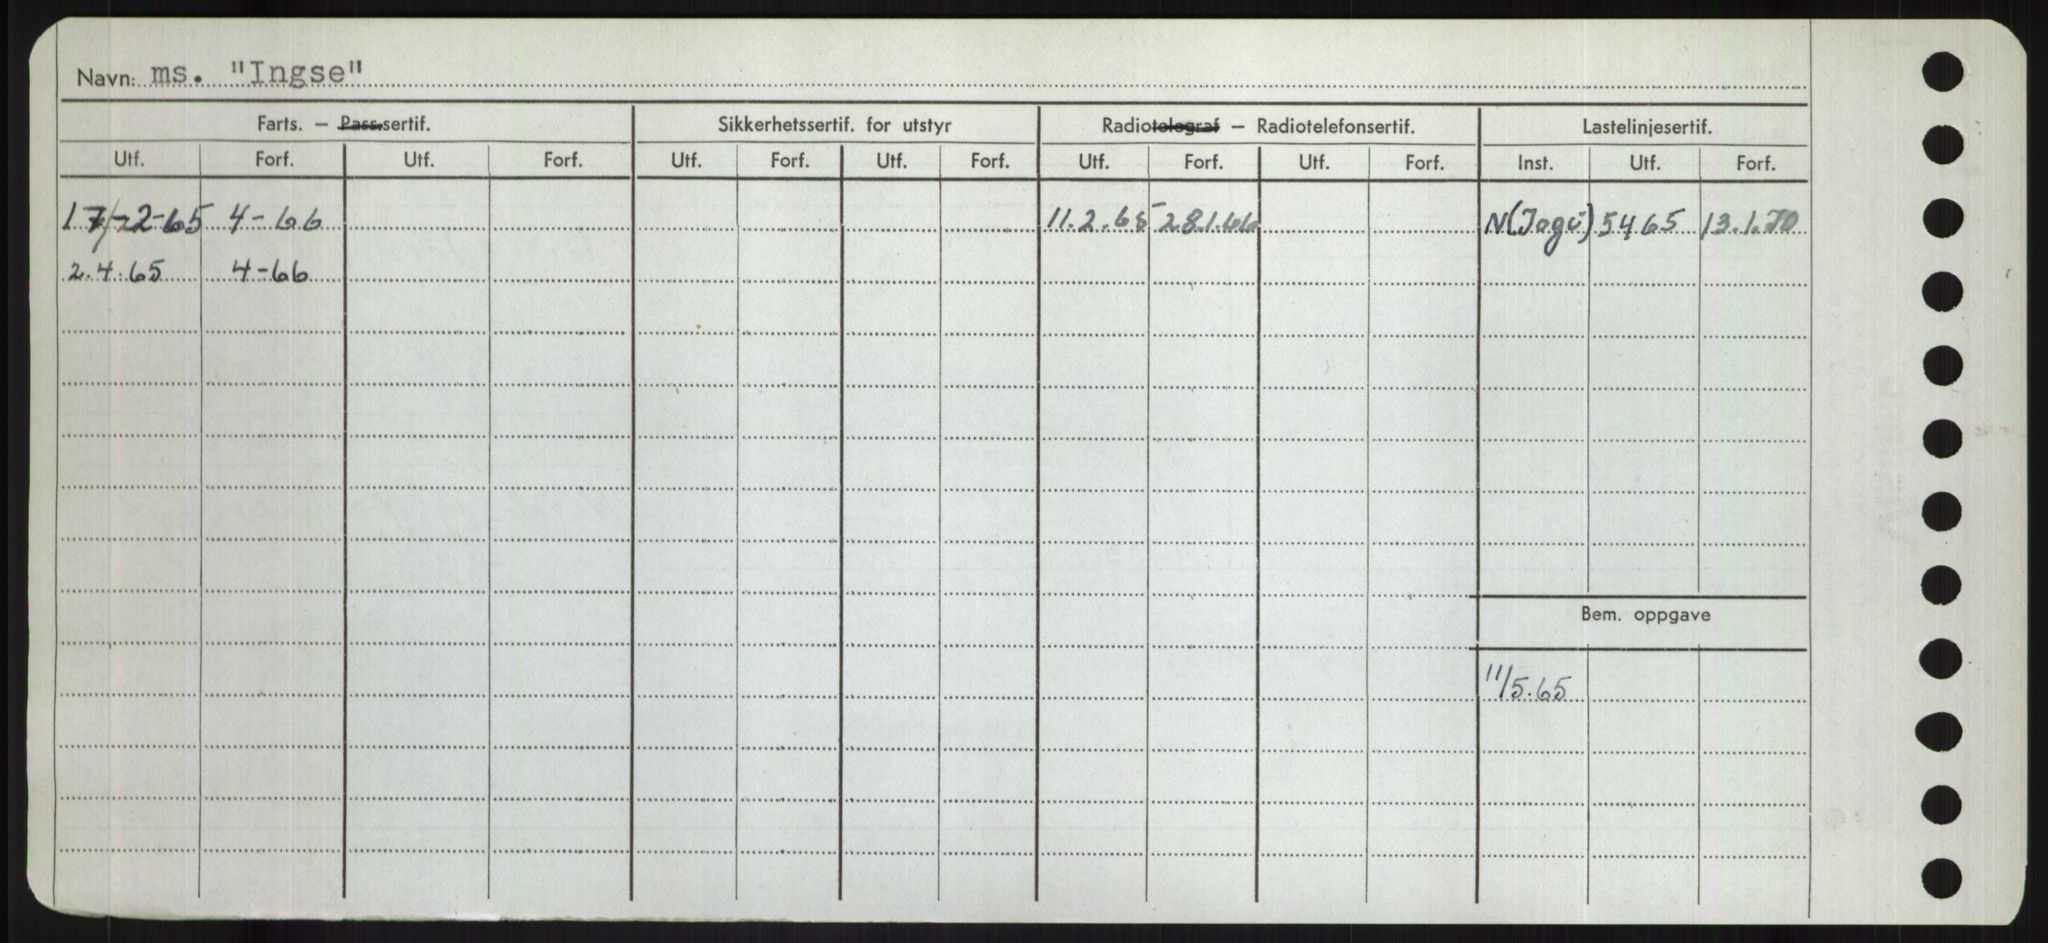 Navn: ms. "Ingse"
Farts. — Pass.sertif. Sikkerhetssertif. for utstyr Radiotelegraf — Radiotelefonsertif. Lastelinjesertif.
Utf. Forf. Utf. Forf. Utf. Forf. Utf. Forf. Utf. Forf. Utf. Forf. Inst. Utf. Forf.
4-66 11.2.65 28.1.66 5465 13.1.70
2.4.65 4-66
Bem. oppgave
11/5.65